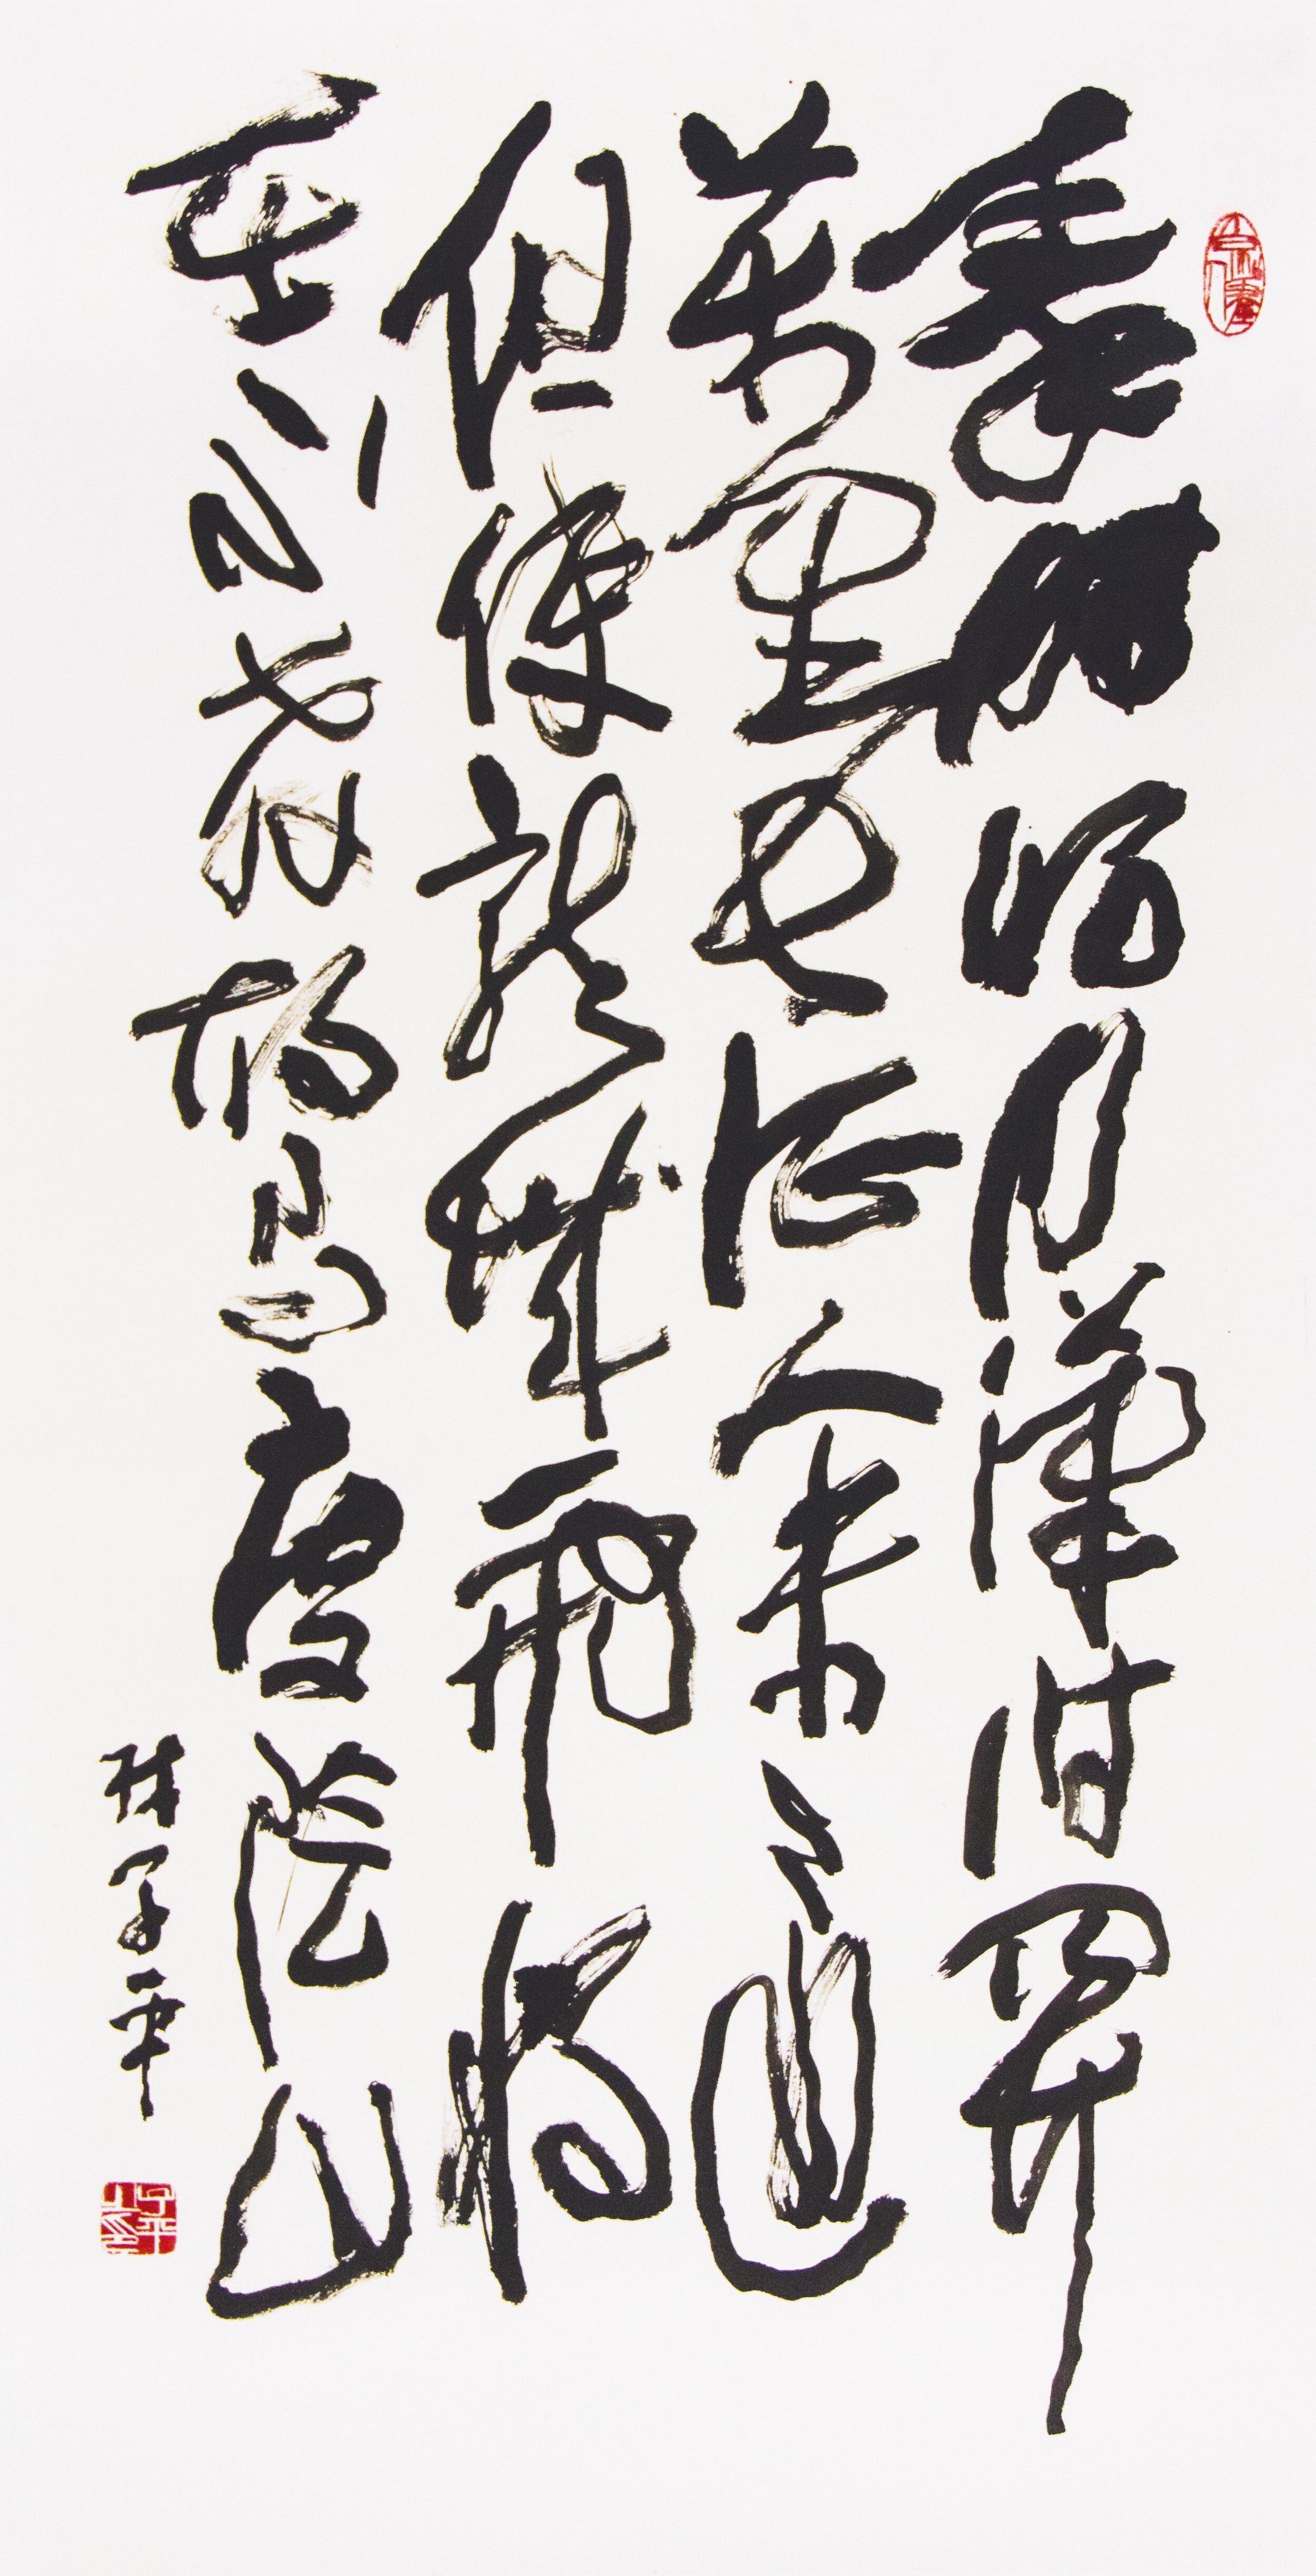 秦時明月漢時關
萬里長征人未還
但使龍城飛將
在不教胡馬度陰山
子平